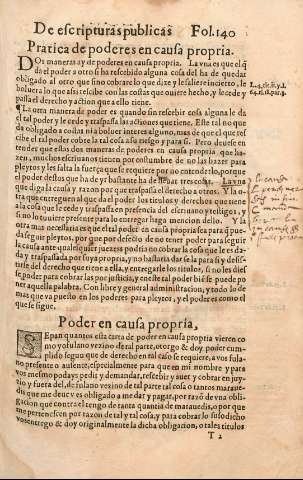 De escripturas publicas Fol.140
Pratica de poderes en causa propria.
DOs maneras ay de poderes en causa propria. La vna es que el q̃
da el poder a otro si ha rescebido alguna cosa del ha de quedar
obligado al otro que sino cobrare lo que dize y le saliere incierto, le
boluera lo que assi rescibe con las costas que ouiere hecho, y le cede y
passa el derecho y action que a ello tiene.
La otra manera de poder es quando sin rescebir cosa alguna le da
el tal poder y le cede y traspassa las actiones que tiene. Este tal no que
da obligado a costas ni a boluer interes alguno, mas de que el que res
cibe el tal poder cobre la tal cosa a su riesgo y para si. Pero deueis en
tender que estos dos maneras de poderes en causa propria que ha-
zen, muchos escriuanos tienen por costumbre de no las hazer para
pleytos y les falta la fuerça que se requiere por no entenderlo, porque
el poder destos que ha de yr bastante ha de lleuar tres cosas. La vna
es que da causa y razon por que traspassa el derecho a otro. Y la o
tra que entreguen al que da el poder los titulos y derechos que tiene a
la cosa que le cede y traspassa en presencia del escriuano y testigos, y
si no lo tuuiere presente para lo entregar haga mencion dello. Y la
otra mas necessaria es que el tal poder en causa propria sea para q̃ pue
da seguir pleytos, por que por defecto de no tener poder para seguir
la causa ante qualesquier juezes podria no cobrar la cosa que le es da-
da y traspassada por suya propria, y no bastaria darsela para si y desis-
tirse del derecho que tiene a ella, y entregarle los titulos, si no les dies
se poder para cobrar las por justicia, y en el tal poder biē se puede po
ner aquella palabra. Con libre y general administracion, y todo lo de
mas que va puesto en los poderes para pleytos, y el poder es como el
que se sigue.
Poder en causa propria,
SEpan quantos esta carta de poder en causa propria vieren co
mo yo fulano vezino de tal parte, otorgo & doy poder cum-
plido segun que de derecho en tal caso se requiere, a vos fula-
no presente o ausente, especialmente para que en mi nombre y para
vos mesmo podays pedir y demandar, rescebir y auer y cobrar en juy-
zio y fuera del, de fulano vezino de tal parte tal cosa o tantos maraue-
dis que me deue y es obligado a me dar y pagar, por razõ de vna obli-
gacion que contra el tengo de tanta quantia de marauedis, o por que
me pertenescen por razon de tal y tal cosa, y para cobrar lo susodicho
vos entrego & doy originalmente la dicha obligacion, o tales titulos
T 2